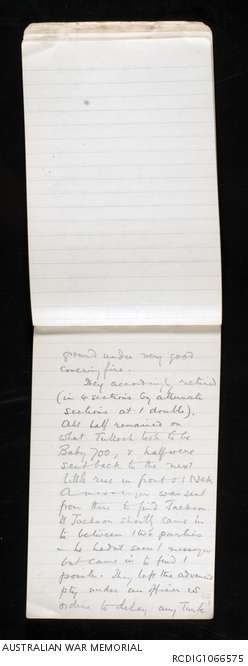 ground under very good
covering fire.
They accordingly retired
(in 4 sections by alternate
sections at 1 double).
Abt half remained on
what Tulloch took to be
Baby 700, & half were
sent back to the next
little rise in front of 1 Nek
A messenger was sent
from there to find Jackson
Lt Jackson shortly came in
to between 1 two parties
he hadn't seen 1 messenger
but came in to find 1
positn. They left the advanced
pty under an officer w
orders to delay any Turk
AUSTRALIAN WAR MEMORIAL
RCDIG1066575